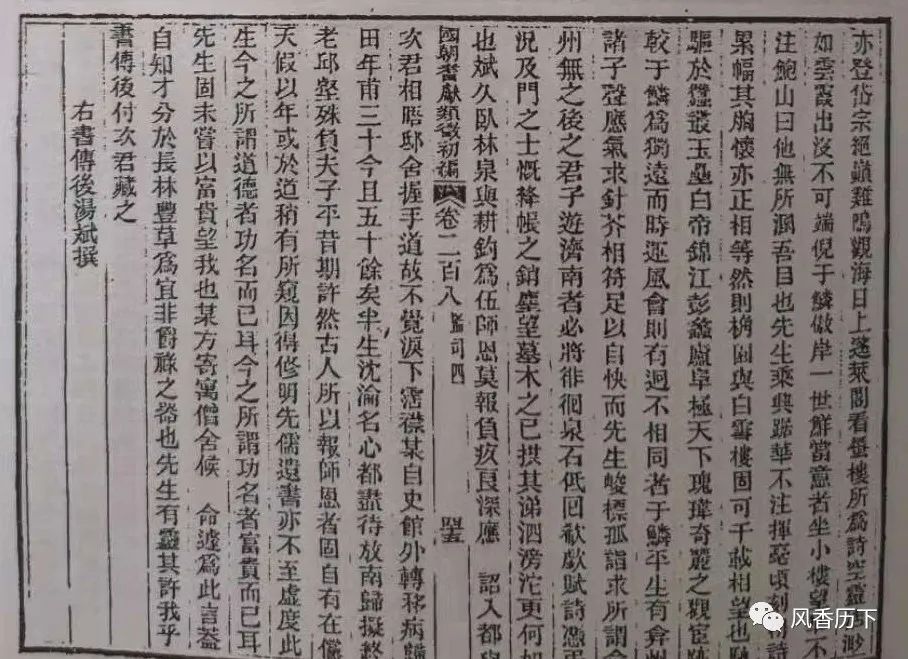 亦登岱宗絕巔雞鳴觀海日上蓬萊閣看蜃樓所爲詩空靈縹緲
如雲霞出沒不可端倪于鱗傲岸一世鮮當意者坐小樓望
注鮑山曰他無所溷吾目也先生乘興踞華不注揮毫頃刻
累幅其胸懷亦正相等然則桷園與白雪樓固可千載相望也
驅於蠶叢玉壘白帝錦江彭蠡廬阜極天下瑰瑋奇麗之觀宦
較于鱗爲獨遠而時運風會則有迥不相同者于鱗平生有弇州
諸子聲應氣求針芥相符足以自快而先生峻標孤詣求所謂
州無之後之君子遊濟南者必將徘徊泉石低回歔欷賦詩憑弔
況及門之士慨絳帳之銷塵望墓木之已拱其涕泗滂沱更何如
也斌久臥林泉與耕釣爲伍師恩莫報負疚良深應 詔入都與
國朝耆獻類徵初編 卷二百八 監司四
次君相晤邸舍握手道故不覺淚下霑襟某自史館外轉移病歸
田年甫三十今且五十餘矣半生沈淪名心都盡待放南歸擬終
老邱壑殊負夫子平昔期許然古人所以報師恩者固自有在儻
天假以年或於道稍有所窺因得修明先儒遺書亦不至虛度此
生今之所謂道德者功名而已耳今之所謂功名者富貴而已耳
先生固未嘗以富貴望我也某方寄寓僧舍候 命遽爲此言蓋
自知才分於長林豐草爲宜非爵祿之器也先生有靈其許我乎
書傳後付次君藏之
右書傳後湯斌撰
风香历下